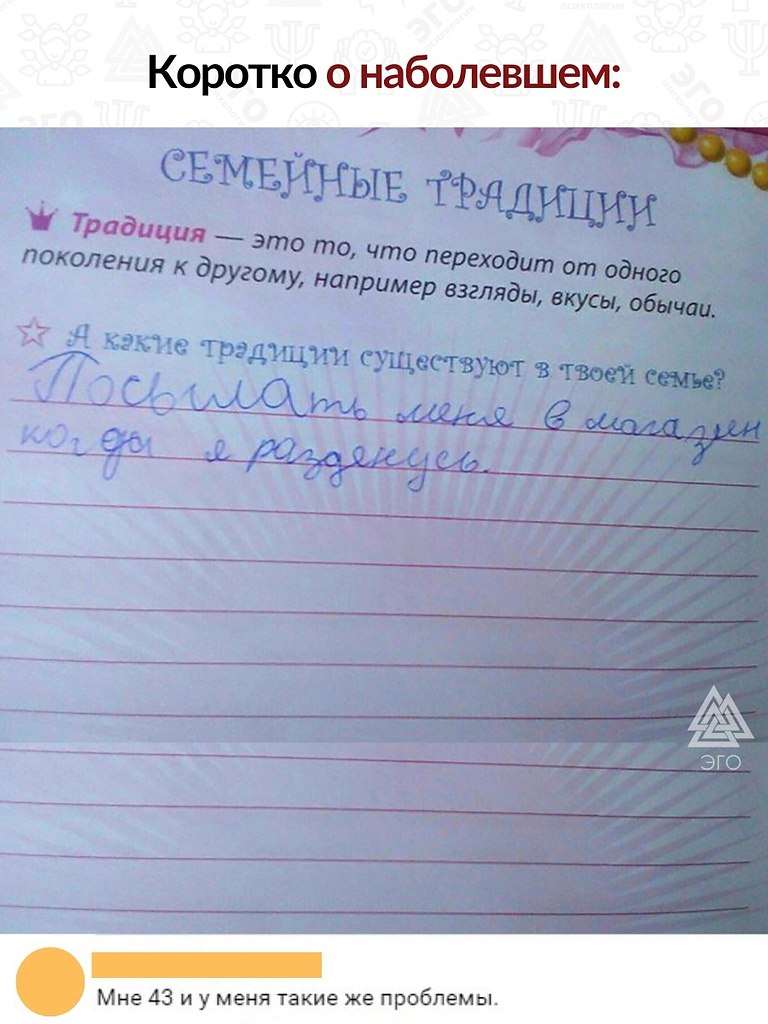 Коротко о наболевшем:
СЕМЕЙНЫЕ ТРАДИЦИИ
Традиция — это то, что переходит от одного
поколения к другому, например взгляды, вкусы, обычаи.
А какие традиции существуют в твоей семье?
Посылать меня в магазин
когда я разденусь.
ЭГО
Мне 43 и у меня такие же проблемы.